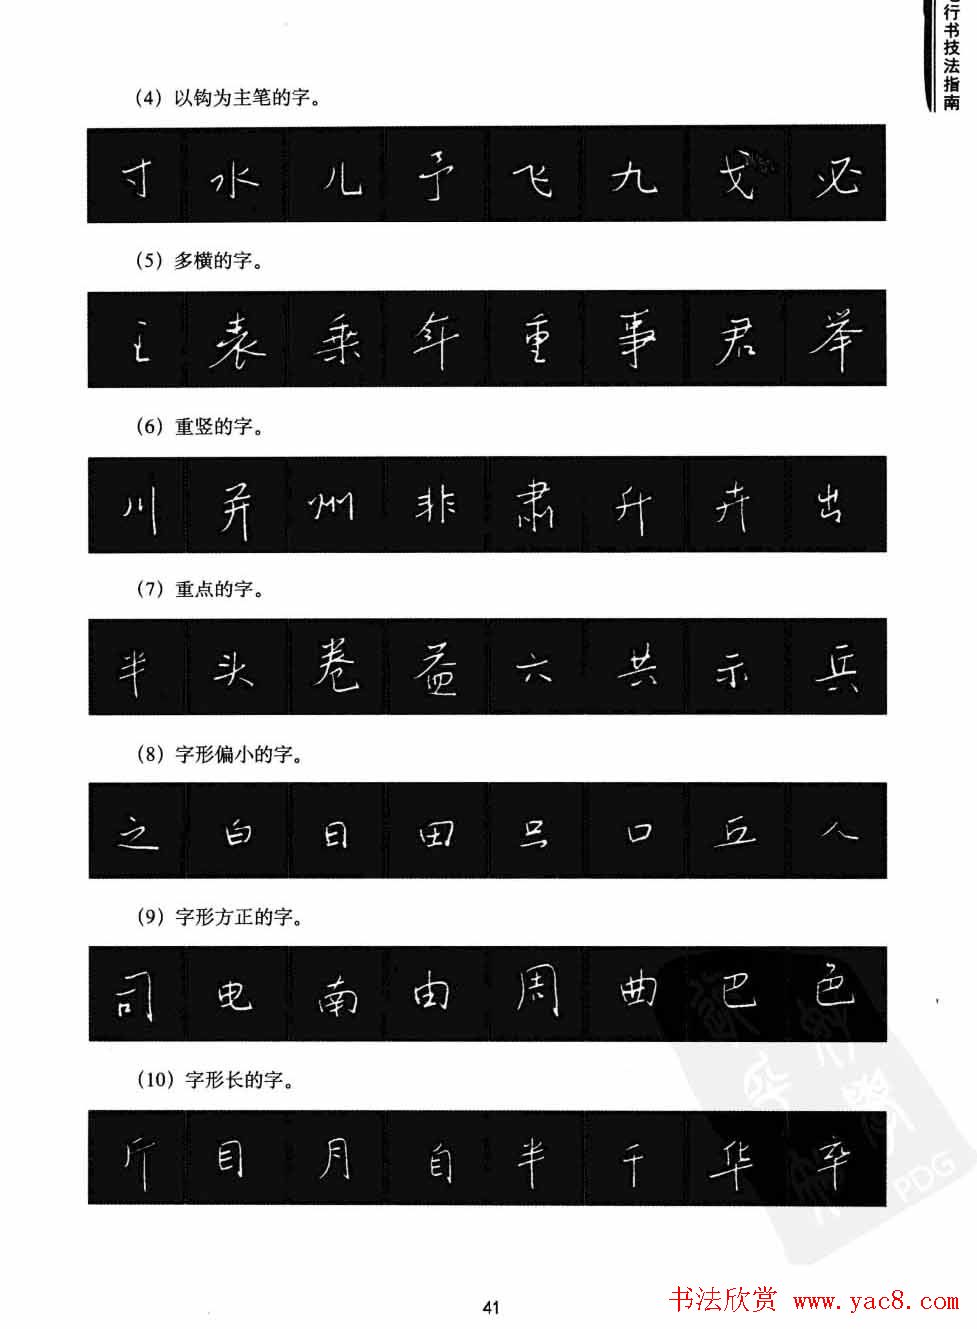 行书技法指南
(4) 以钩为主笔的字。
寸 水 儿 予 飞 九 戈 必
(5) 多横的字。
王 表 乘 年 重 事 君 举
(6) 重竖的字。
川 并 州 非 肃 升 卉 出
(7) 重点的字。
半 头 卷 益 六 共 示 兵
(8) 字形偏小的字。
之 白 日 田 只 口 丘 人
(9) 字形方正的字。
司 电 南 由 周 曲 巴 色
(10) 字形长的字。
斤 目 月 自 半 千 华 卒
PDG
41
书法欣赏 www.yac8.com